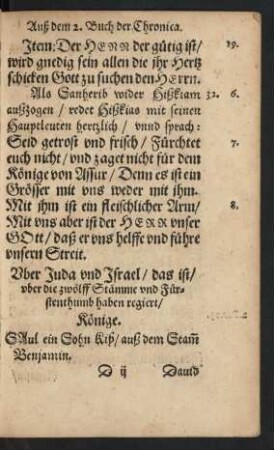 Auß dem 2. Buch der Chronica.
Item: Der HERR der gütig ist/ 19.
wird gnedig sein allen die ihr Hertz
schicken Gott zu suchen den HErrn.
Als Sanherib wider Hißkiam 32. 6.
außzogen / redet Hißkias mit seinen
Hauptleuten hertzlich / vnnd sprach:
Seid getrost vnd frisch / Fürchtet 7.
euch nicht / vnd zaget nicht für dem
Könige von Assur / Denn es ist ein
Grösser mit vns weder mit ihm.
Mit ihm ist ein fleischlicher Arm/ 8.
Mit vns aber ist der HERR vnser
GOtt / daß er vns helffe vnd führe
vnsern Streit.
Vber Juda vnd Israel / das ist/
vber die zwölff Stämme vnd Für-
stenthumb haben regiert/
Könige.
SAul ein Sohn Kiß / auß dem Stam̃
Benjamin.
D ij David